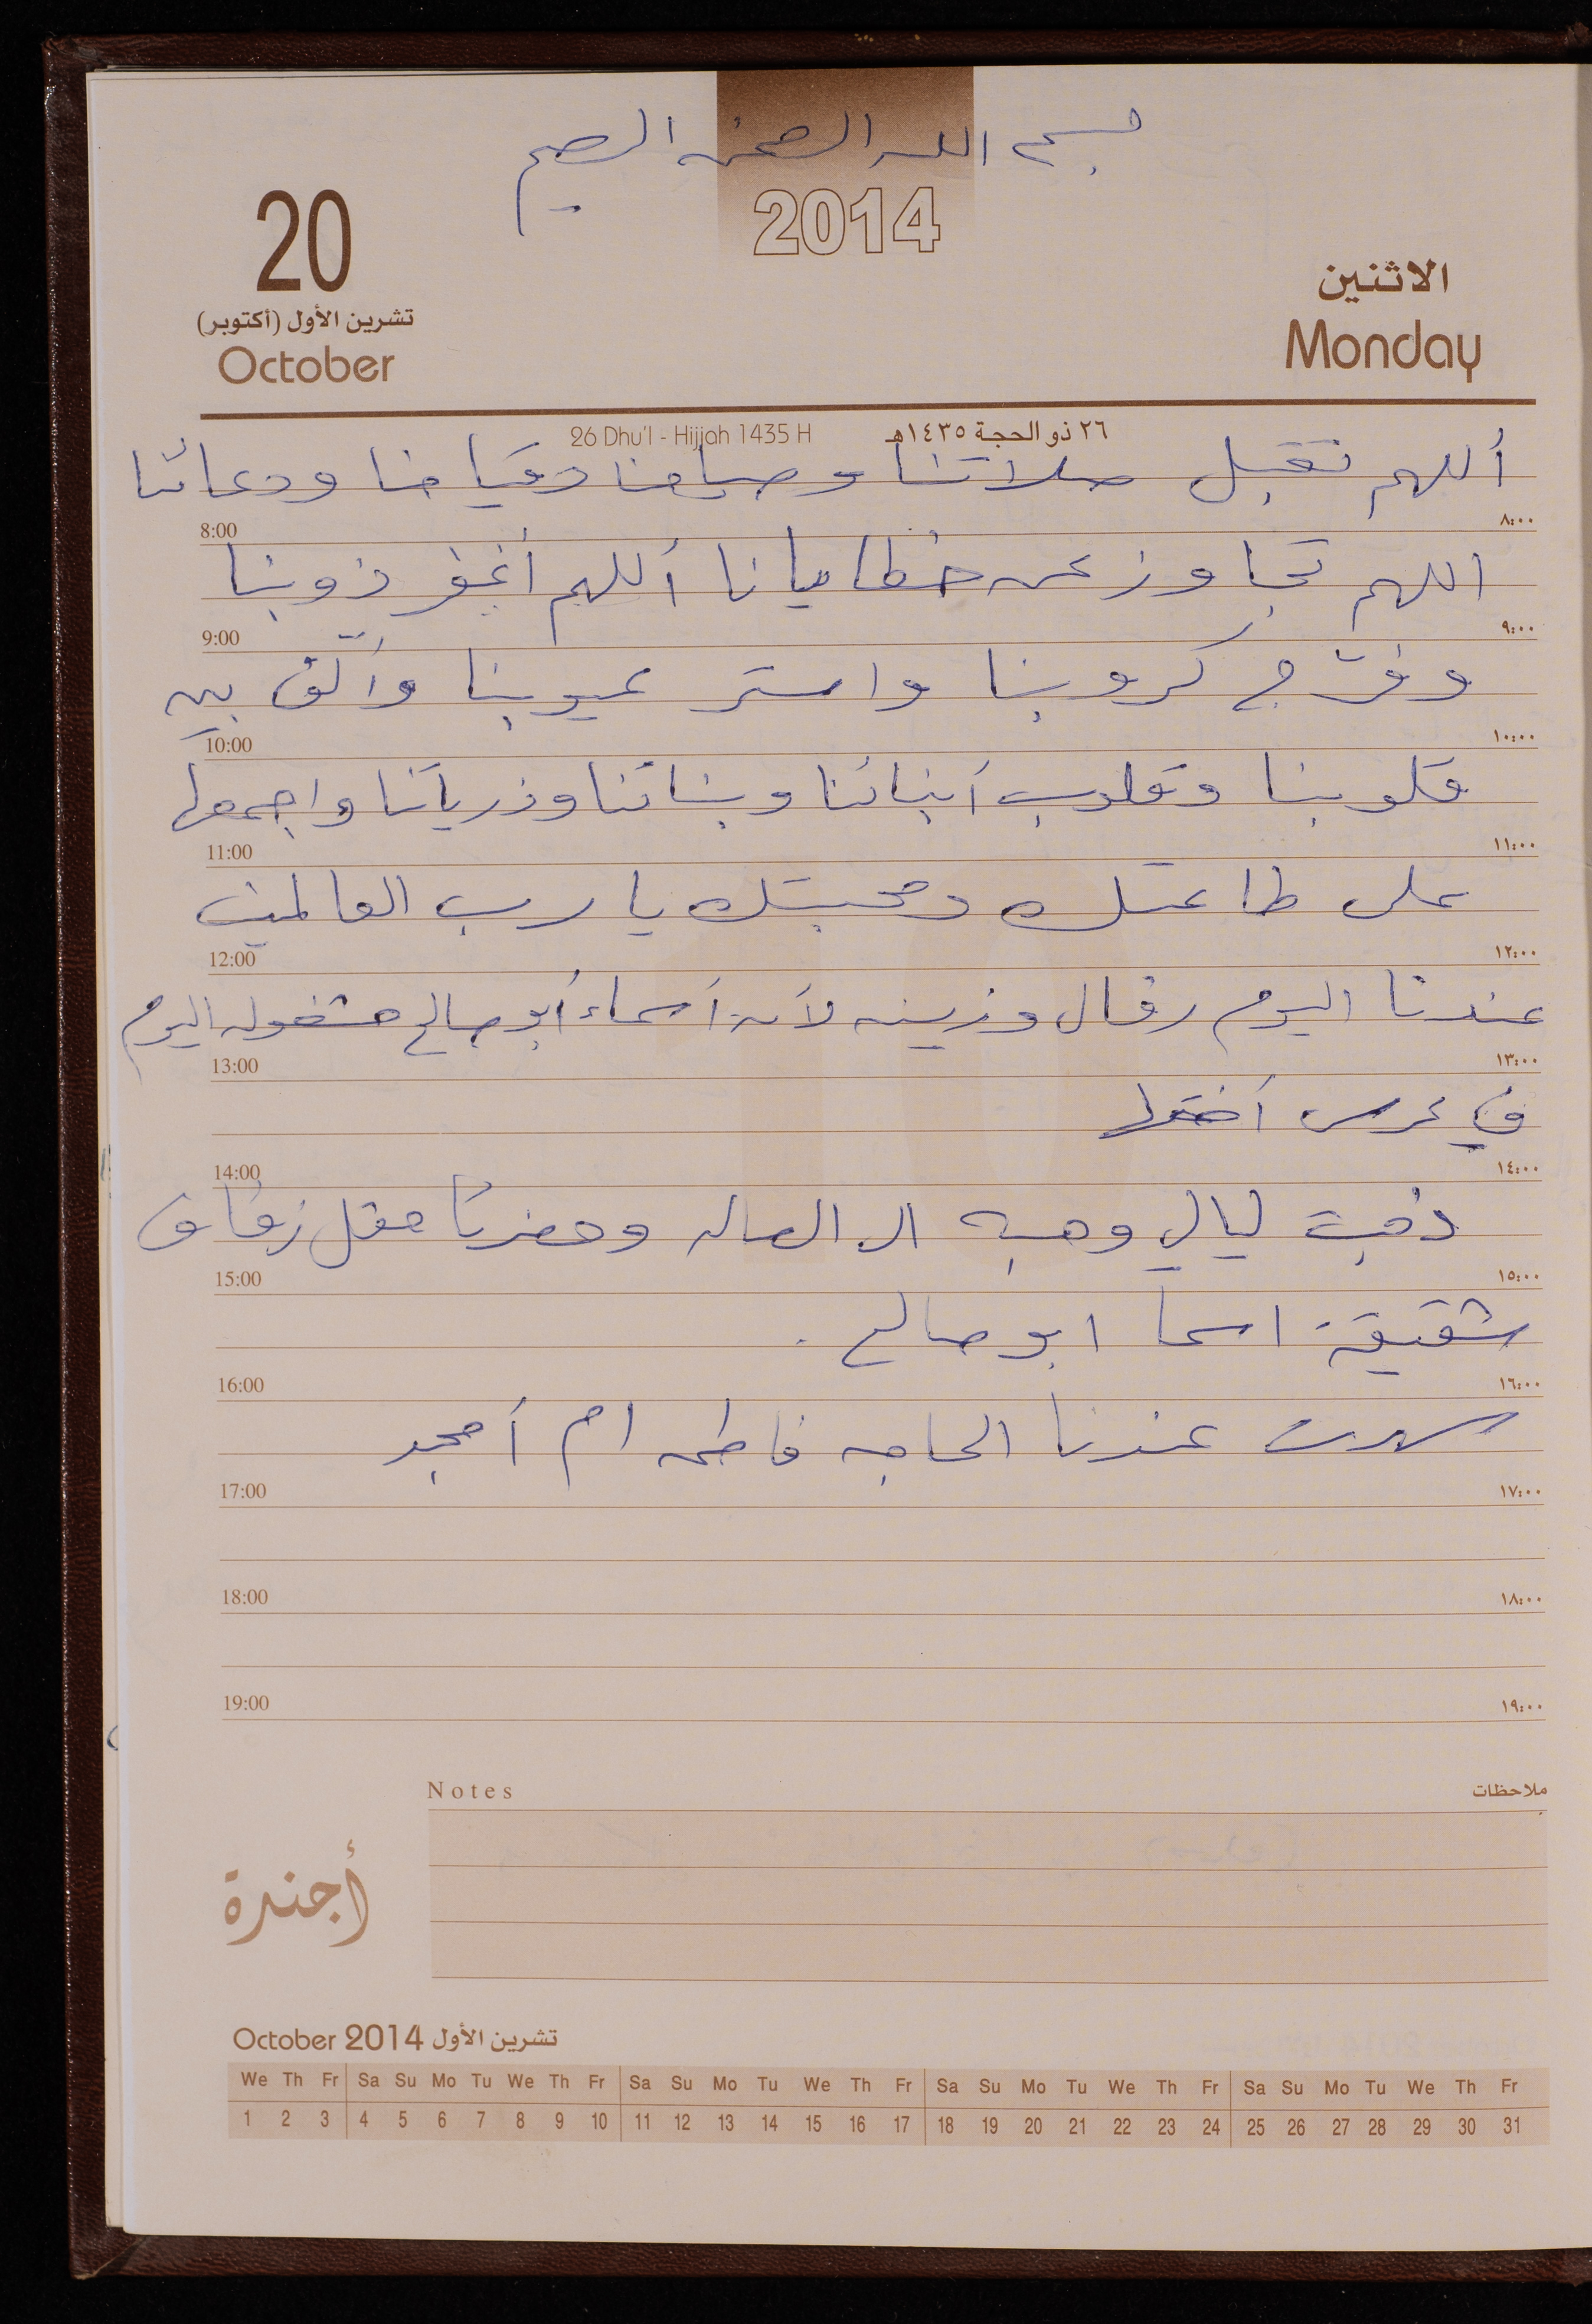 بسم الله الرحمن الرحيم
2014
20
تشرين الأول (أكتوبر)
October
الاثنين
Monday
26 Dhu'l - Hijjah 1435 H ٢٦ ذو الحجة ١٤٣٥هـ
أللهم تقبل صلاتنا وصيامنا وقيامنا ودعائنا
8:00 ٨:٠٠
اللهم تجاوز عن خطايانا أللهم أغفر ذوبنا
9:00 ٩:٠٠
وفرّج كروبنا واستر عيوبنا وألّف بين
10:00 ١٠:٠٠
قلوبنا وقلوب أبنائنا وبناتنا وذرياتنا واجمعها
11:00 ١١:٠٠
على طاعتك ومحبتك يا رب العالمين
12:00 ١٢:٠٠
عندنا اليوم رفال وزينه لأن أسماء أبو صالح مشغوله اليوم
13:00 ١٣:٠٠
في عرس أختها
14:00 ١٤:٠٠
ذهبت ليالي وهبه الى الصاله وحضرتا حفل زفاف
15:00 ١٥:٠٠
شقيقة اسما ابو صالح.
16:00 ١٦:٠٠
سهرت عندنا الحاجه فاطمه ام أمجد
17:00 ١٧:٠٠
18:00 ١٨:٠٠
19:00 ١٩:٠٠
Notes ملاحظات
أجندة
October 2014 تشرين الأول
We Th Fr Sa Su Mo Tu We Th Fr Sa Su Mo Tu We Th Fr Sa Su Mo Tu We Th Fr Sa Su Mo Tu We Th Fr
1 2 3 4 5 6 7 8 9 10 11 12 13 14 15 16 17 18 19 20 21 22 23 24 25 26 27 28 29 30 31